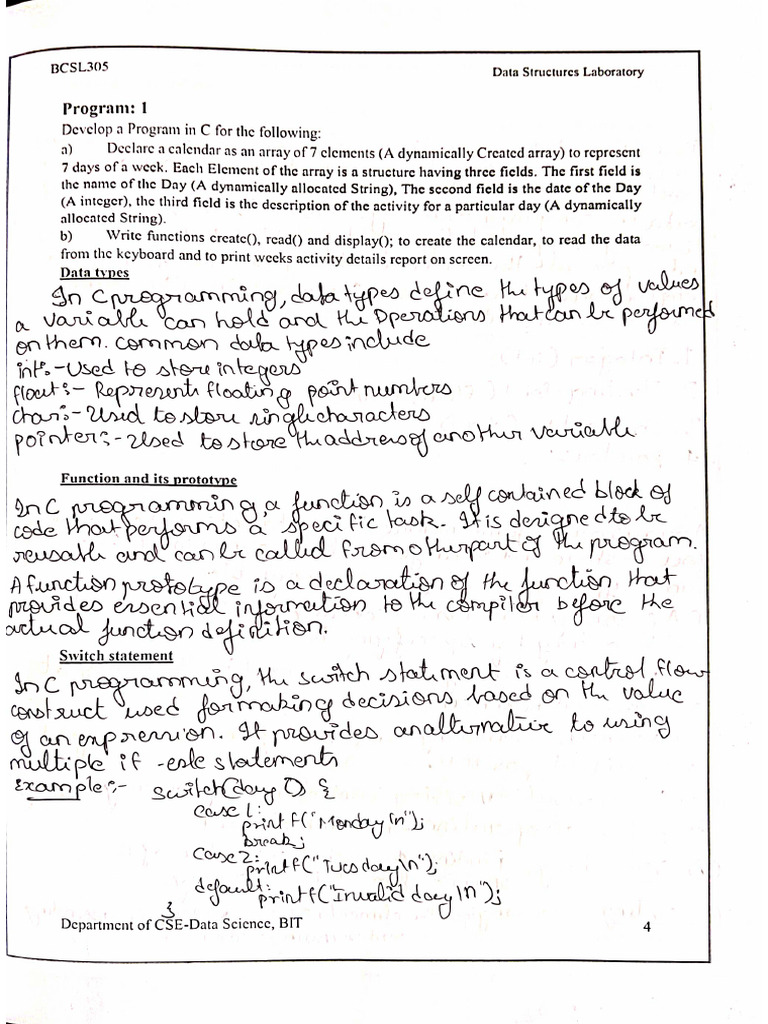 BCSL305
Data Structures Laboratory
Program: 1
Develop a Program in C for the following:
a) Declare a calendar as an array of 7 elements (A dynamically Created array) to represent
7 days of a week. Each Element of the array is a structure having three fields. The first field is
the name of the Day (A dynamically allocated String), The second field is the date of the Day
(A integer), the third field is the description of the activity for a particular day (A dynamically
allocated String).
b) Write functions create(), read() and display(); to create the calendar, to read the data
from the keyboard and to print weeks activity details report on screen.
Data types
In C programming, data types define the types of values
a variable can hold and the Operations that can be performed
on them. common data types include
int:- Used to store integers
float:- Represents floating point numbers
char:- Used to store single characters
pointer:- Used to store the address of another variable
Function and its prototype
In C programming, a function is a self contained block of
code that performs a specific task. It is designed to be
reusable and can be called from other part of the program.
A function prototype is a declaration of the function that
provides essential information to the compiler before the
actual function definition.
Switch statement
In C programming, the switch statement is a control flow
construct used for making decisions based on the value
of an expression. It provides an alternative to using
multiple if -esle statements
Example:- switch(day) {
case 1:
printf("Monday\n");
break;
case 2:
printf("Tuesday\n");
default:
printf("Invalid day\n");
}
Department of CSE-Data Science, BIT
4